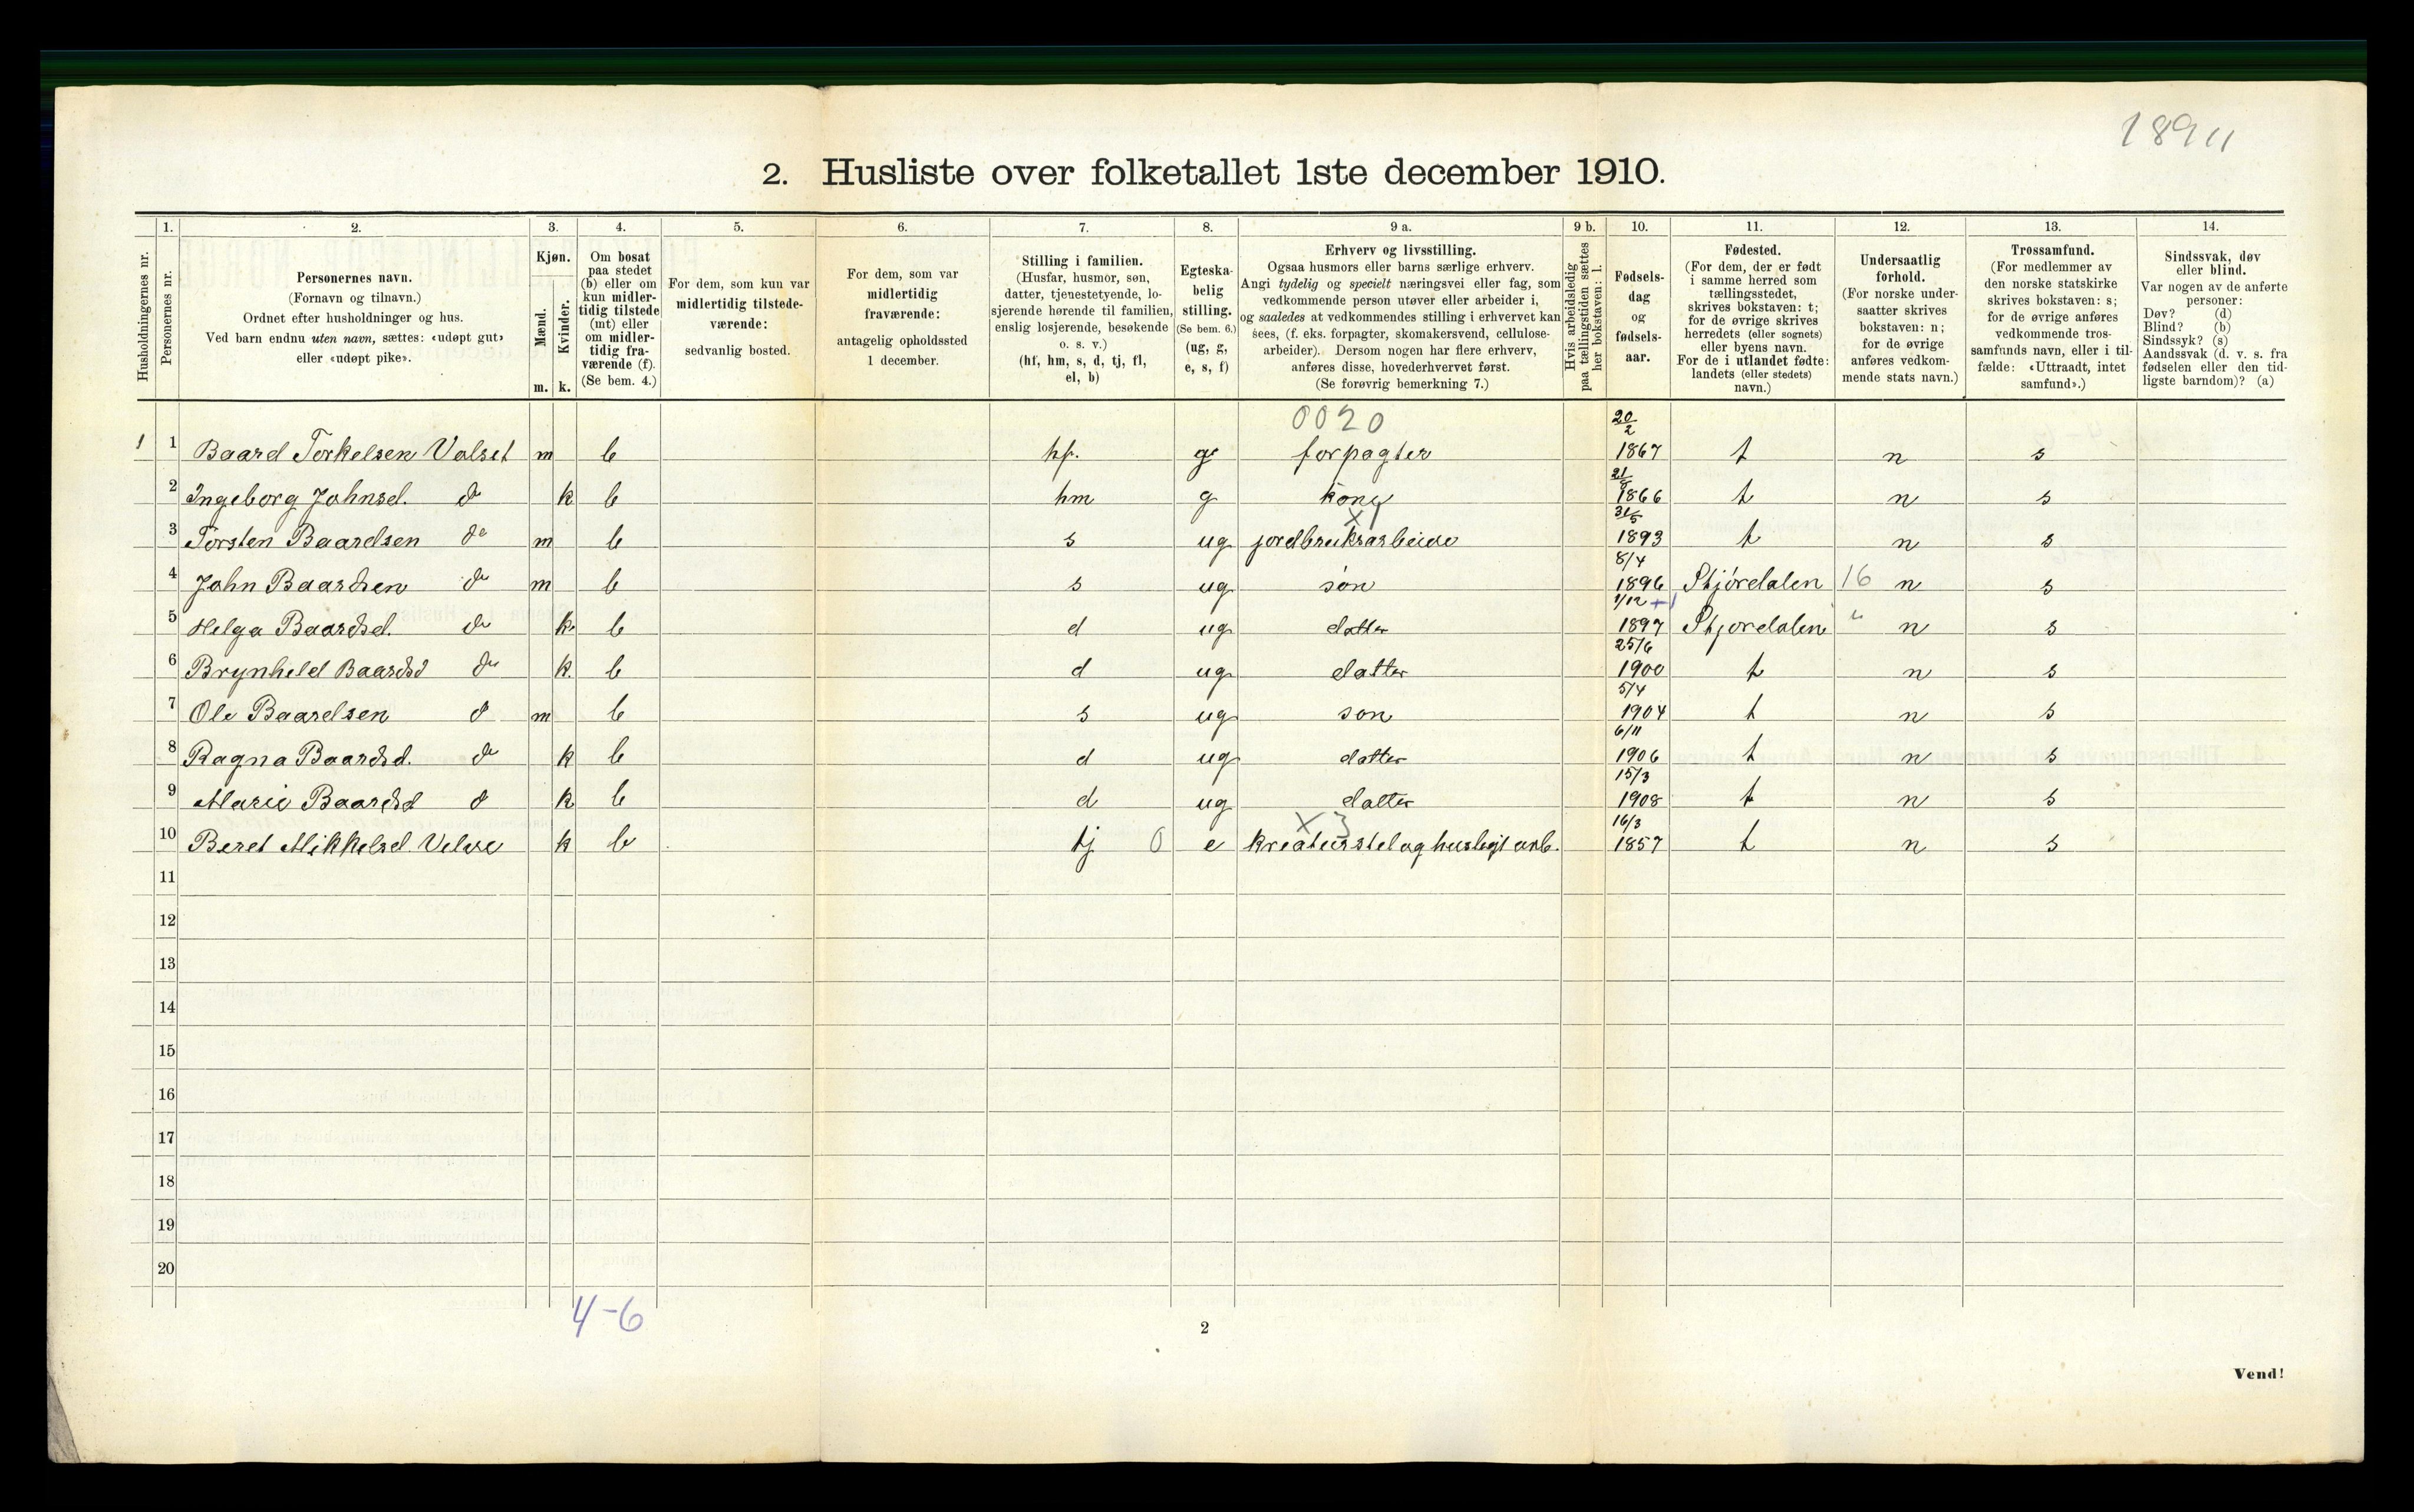 1891
2. Husliste over folketallet 1ste december 1910.
Husholdningernes nr.
1. Personernes nr.
2. Personernes navn. (Fornavn og tilnavn.) Ordnet efter husholdninger og hus. Ved barn endnu uten navn, sættes: «udøpt gut» eller «udøpt pike».
3. Kjøn. Mænd. m. Kvinder. k.
4. Om bosat paa stedet (b) eller om kun midlertidig tilstede (mt) eller om midlertidig fraværende (f). (Se bem. 4.)
5. For dem, som kun var midlertidig tilstedeværende: sedvanlig bosted.
6. For dem, som var midlertidig fraværende: antagelig opholdssted 1 december.
7. Stilling i familien. (Husfar, husmor, søn, datter, tjenestetyende, losjerende hørende til familien, enslig losjerende, besøkende o. s. v.) (hf, hm, s, d, tj, fl, el, b)
8. Egteskabelig stilling. (Se bem. 6.) (ug, g, e, s, f)
9 a. Erhverv og livsstilling. Ogsaa husmors eller barns særlige erhverv. Angi tydelig og specielt næringsvei eller fag, som vedkommende person utøver eller arbeider i, og saaledes at vedkommendes stilling i erhvervet kan sees, (f. eks. forpagter, skomakersvend, cellulosearbeider). Dersom nogen har flere erhverv, anføres disse, hovederhvervet først. (Se forøvrig bemerkning 7.)
9 b. Hvis arbeidsledig paa tællingstiden sættes her bokstaven: l.
10. Fødselsdag og fødselsaar.
11. Fødested. (For dem, der er født i samme herred som tællingsstedet, skrives bokstaven: t; for de øvrige skrives herredets (eller sognets) eller byens navn. For de i utlandet fødte: landets (eller stedets) navn.)
12. Undersaatlig forhold. (For norske undersaatter skrives bokstaven: n; for de øvrige anføres vedkommende stats navn.)
13. Trossamfund. (For medlemmer av den norske statskirke skrives bokstaven: s; for de øvrige anføres vedkommende trossamfunds navn, eller i tilfælde: «Uttraadt, intet samfund».)
14. Sindssvak, døv eller blind. Var nogen av de anførte personer: Døv? (d) Blind? (b) Sindssyk? (s) Aandssvak (d. v. s. fra fødselen eller den tidligste barndom)? (a)
0020
1 1 Baard Torkelsen Valset m b hf. g forpagter 20/2 1867 t n s
2 Ingeborg Johnsd. do k b hm g kone 21/8 1866 t n s
X 1
3 Torsten Baardsen do m b s ug jordbruksarbeide 31/5 1893 t n s
4 John Baardsen do m b s ug søn 8/4 1896 Stjørdalen 16 n s
5 Helga Baardsd. do k. b d ug datter 1/12 1897 Stjørdalen " n s
6 Brynheld Baardsd do k. b d ug datter 25/6 1900 t n s
7 Ole Baardsen do m b s ug søn 5/4 1904 t n s
8 Ragna Baardsd. do k b d ug datter 6/11 1906 t n s
9 Marie Baardsd do k b d ug datter 15/3 1908 t n s
X 3
10 Beret Mikkelsd. k b tj 0 e kreaturstel og husligt arb. 16/3 1857 t n s
11
12
13
14
15
16
17
18
19
20
4-6
2
Vend!